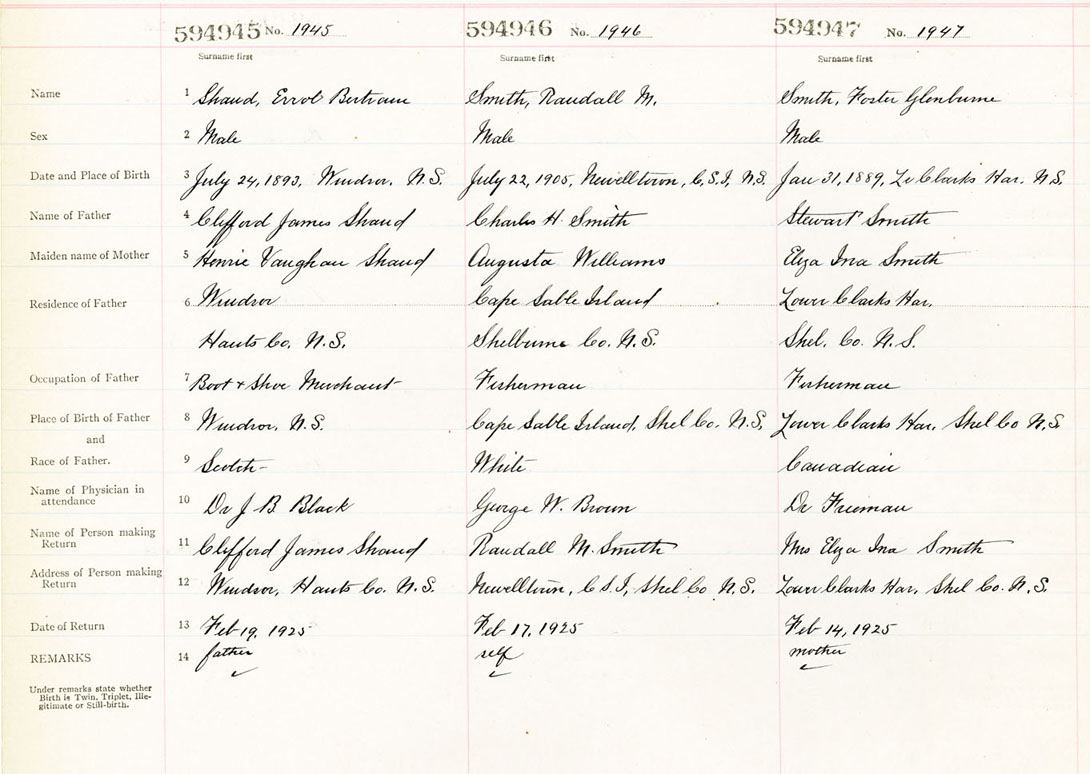 594945 No. 1945 594946 No. 1946 594947 No. 1947
Surname first Surname first Surname first
Name 1 Shand, Errol Bertram Smith, Randall M. Smith, Foster Glenburne
Sex 2 Male Male Male
Date and Place of Birth 3 July 24, 1893, Windsor, N.S. July 22, 1905, Newelltown, C.S.I, N.S. Jan 31, 1889, Lr Clarks Har. N.S.
Name of Father 4 Clifford James Shand Charles H. Smith Stewart Smith
Maiden name of Mother 5 Henrie Vaughan Shand Augusta Williams Elza Ina Smith
Residence of Father 6 Windsor Cape Sable Island Lower Clarks Har.
Hants Co. N.S. Shelburne Co. N.S. Shel. Co. N.S.
Occupation of Father 7 Boot + Shoe Merchant Fisherman Fisherman
Place of Birth of Father 8 Windsor, N.S. Cape Sable Island, Shel Co. N.S. Lower Clarks Har. Shel Co N.S
and
Race of Father. 9 Scotch- White Canadian
Name of Physician in
attendance 10 Dr J B. Black George W. Brown Dr Freeman
Name of Person making
Return 11 Clifford James Shand Randall M. Smith Mrs Elza Ina Smith
Address of Person making
Return 12 Windsor, Hants Co. N.S. Newelltown, C.S.I, Shel Co N.S. Lower Clarks Har, Shel Co. N.S.
Date of Return 13 Feb 19, 1925 Feb 17, 1925 Feb 14, 1925
REMARKS 14 father self mother
Under remarks state whether
Birth is Twin, Triplet, Ille-
gitimate or Still-birth.